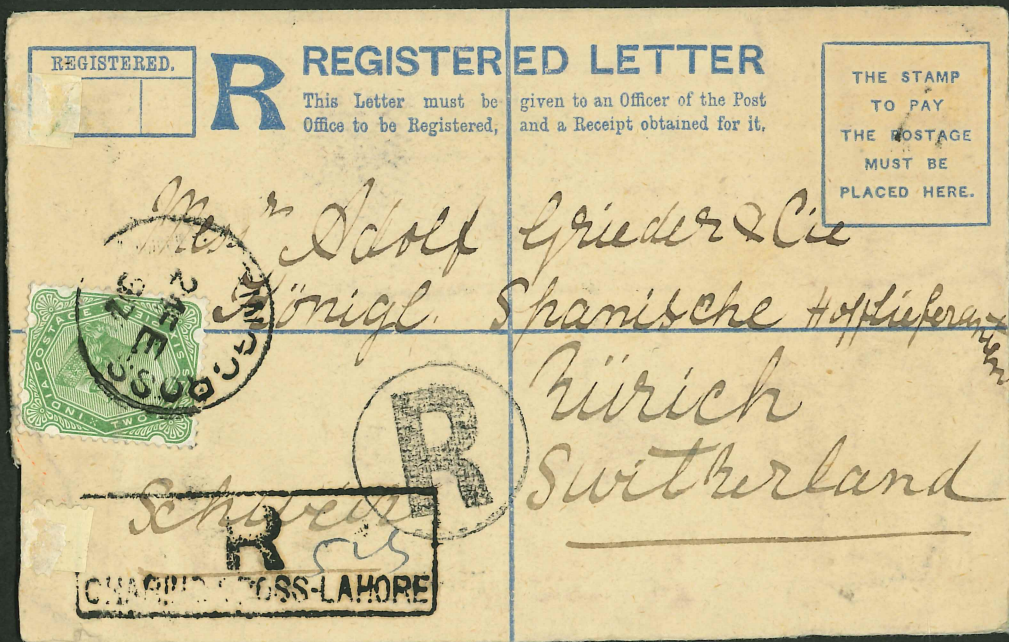 REGISTERED.
R
REGISTERED LETTER
This Letter must be given to an Officer of the Post
Office to be Registered, and a Receipt obtained for it.
THE STAMP
TO PAY
THE POSTAGE
MUST BE
PLACED HERE.
Mess rs Adolf Grieder & Cie
Königl. Spanische Hofflieferanten
Zürich
Switherland
Schweiz
R
R
CHARING CROSS-LAHORE
POSTAGE
TWO